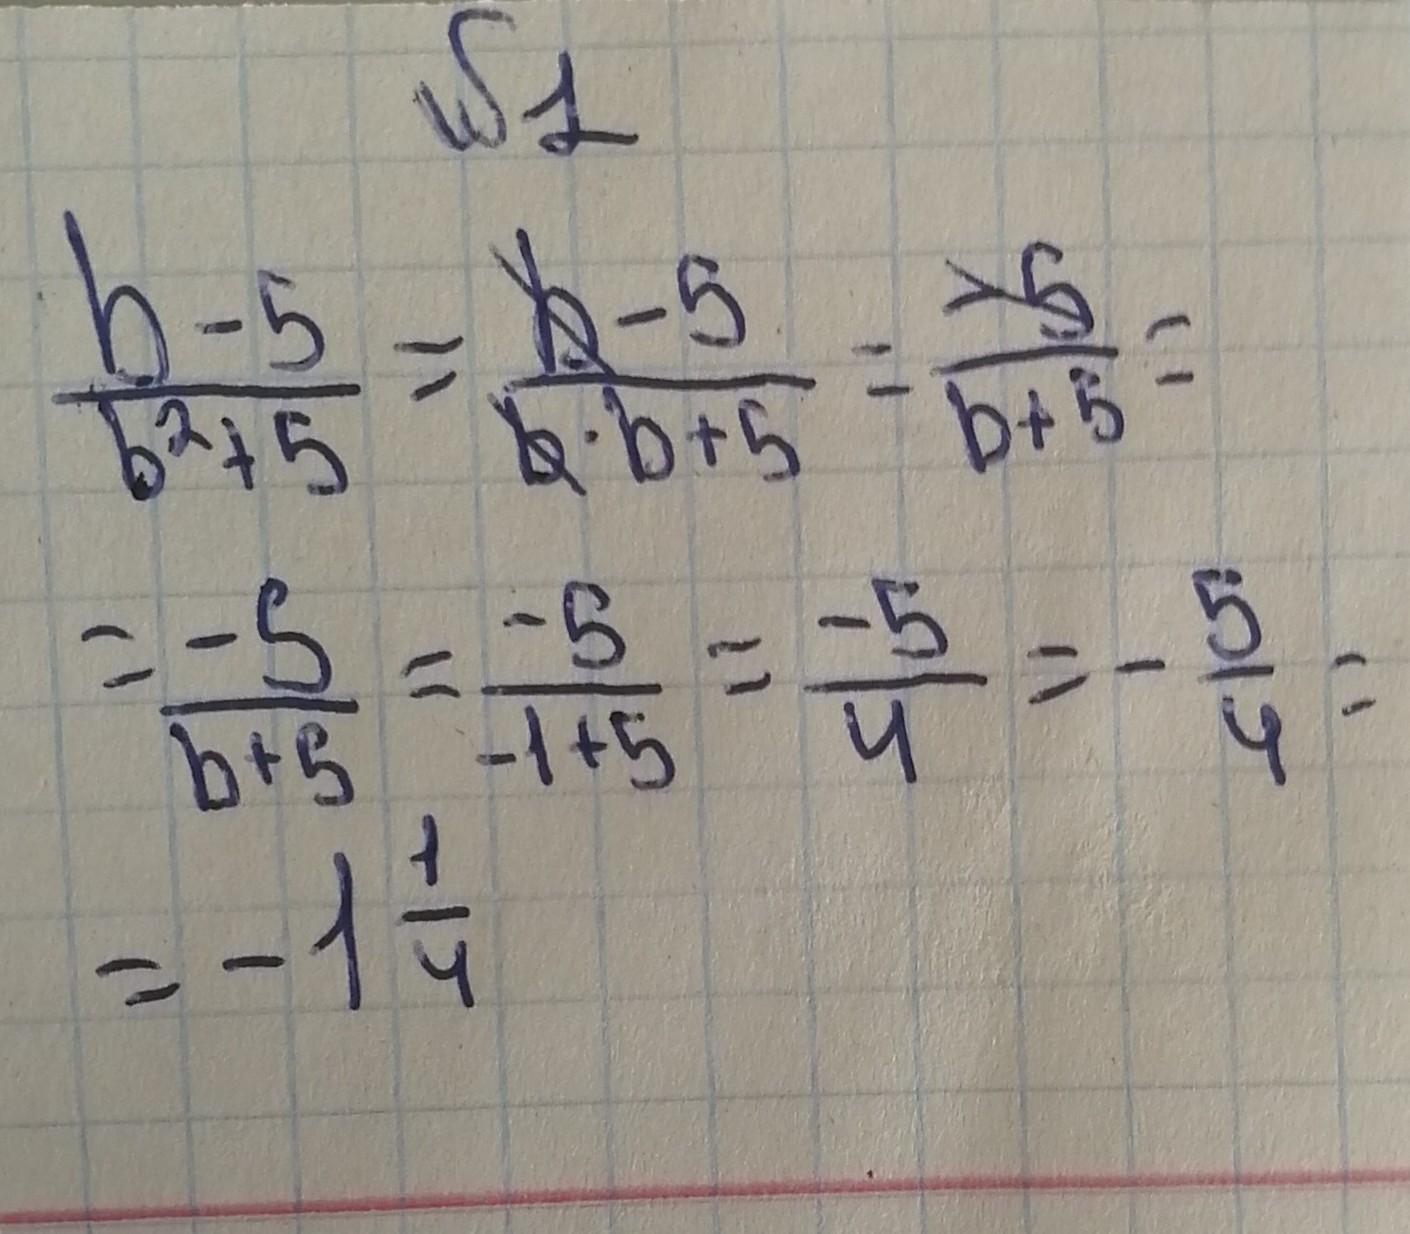 №1
b-5/b²+5 = b-5/b·b+5 = -5/b+5 =
= -5/b+5 = -5/-1+5 = -5/4 = -5/4 =
= -1 1/4